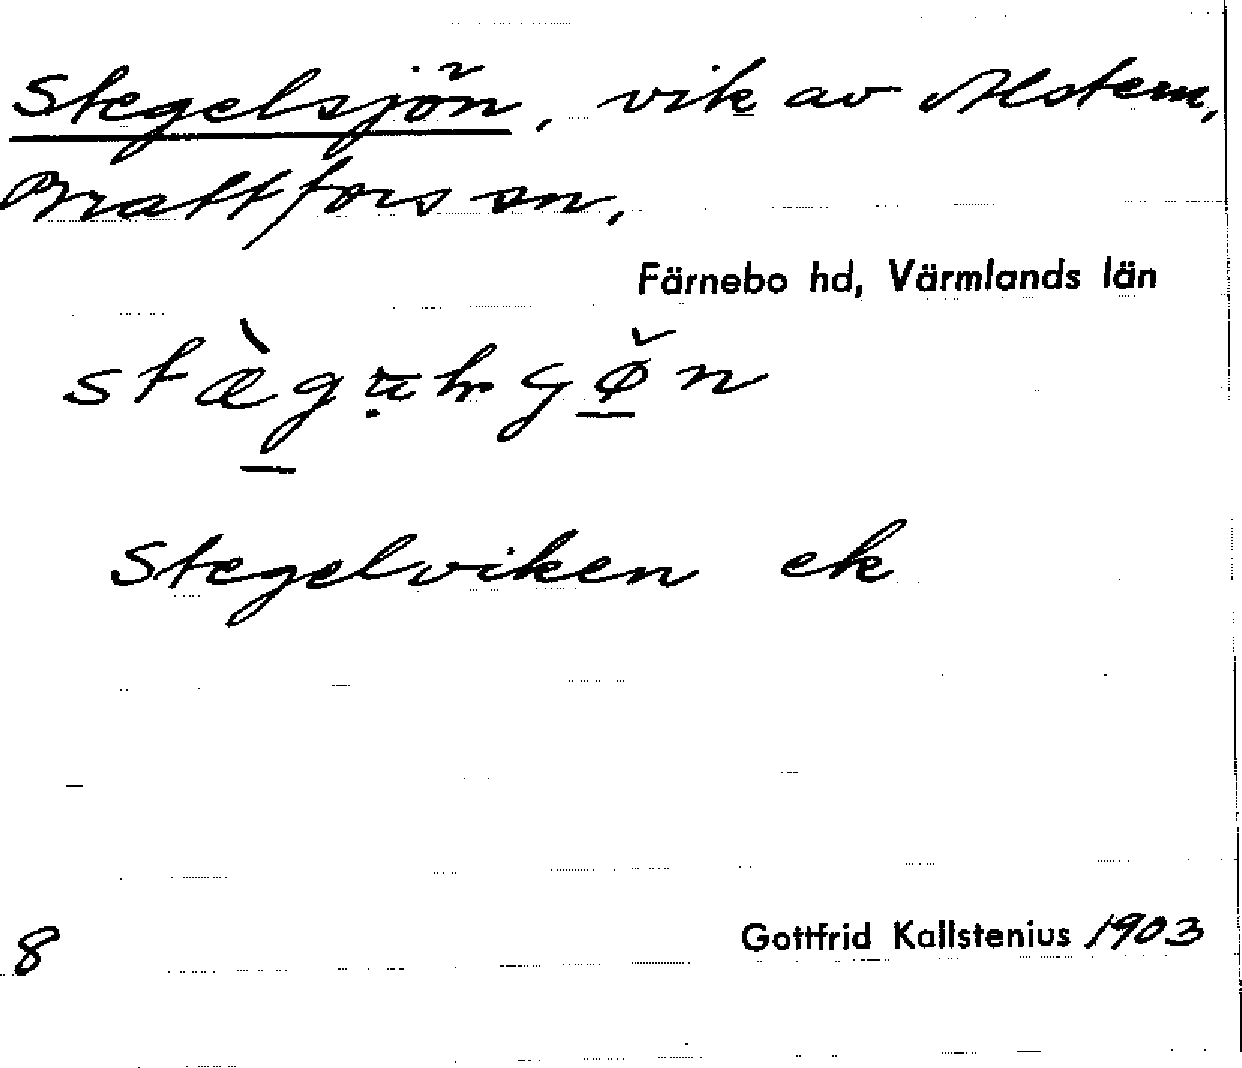 Stegelsjön, vik av Alstern,
Brattfors sn,
Färnebo hd, Värmlands län
Stegelviken ek
8 Gottfrid Kallstenius 1903